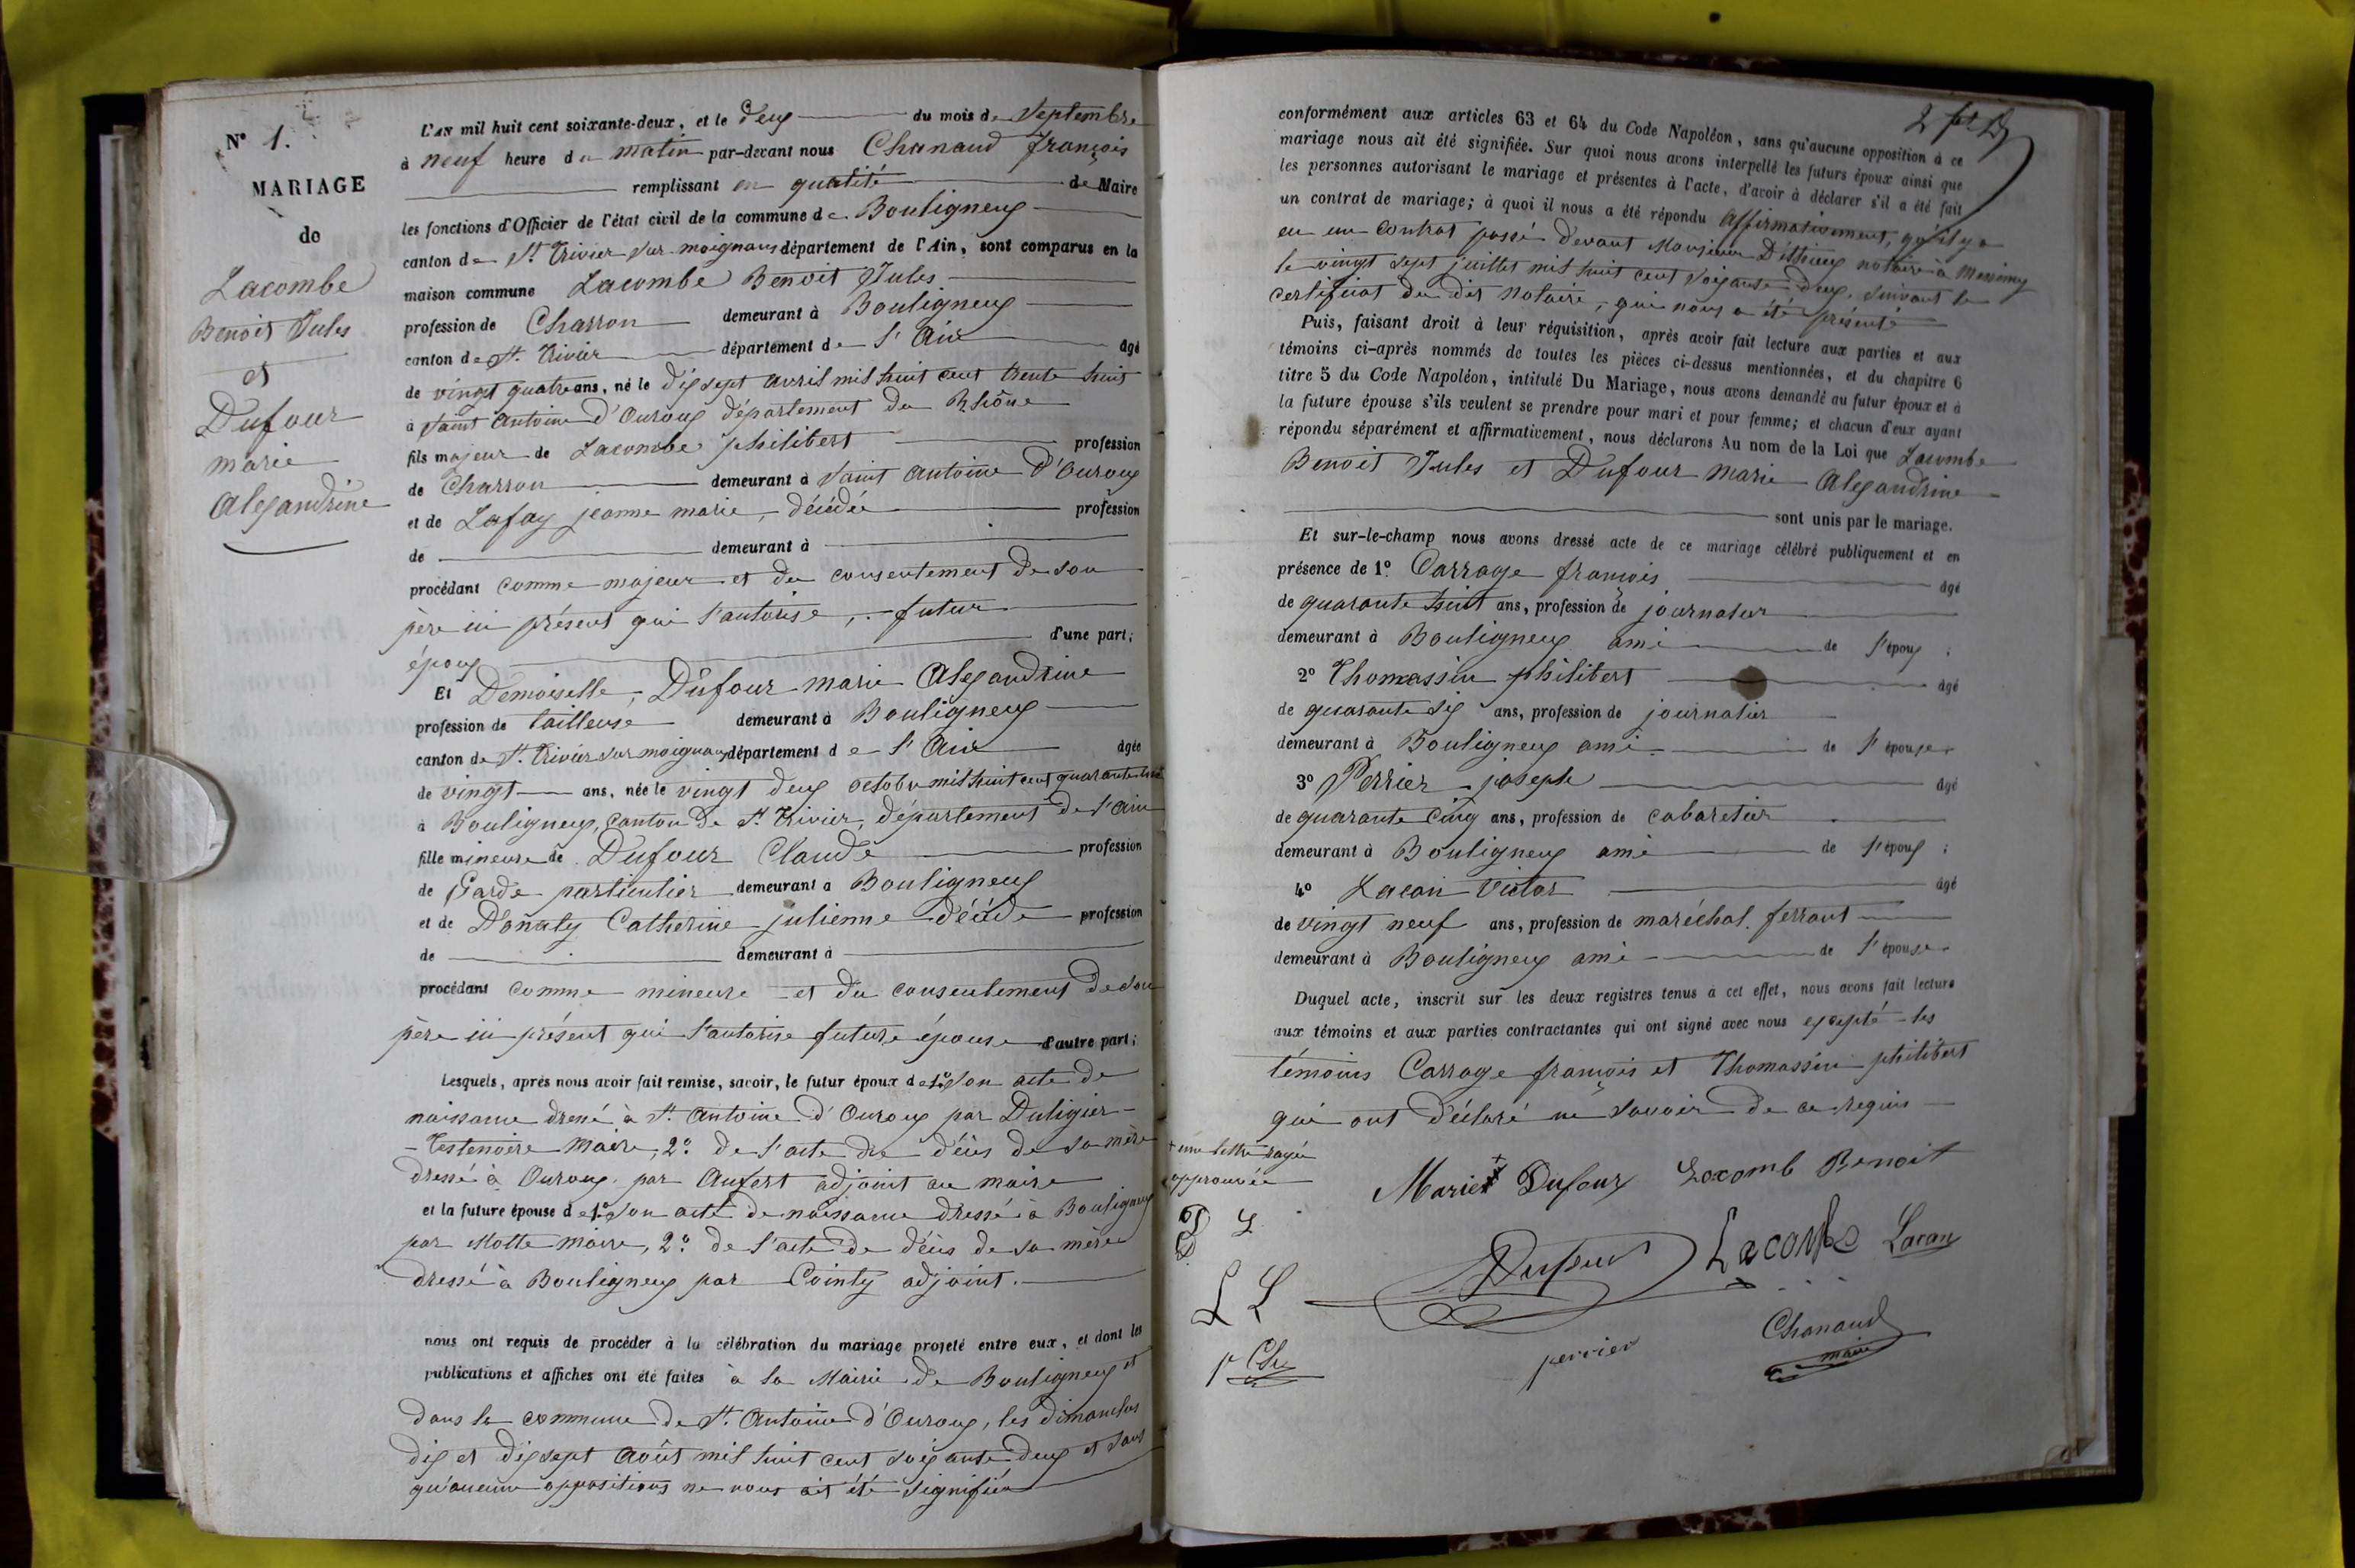 N° 1.
MARIAGE
de
Lacombe
Benoit Jules
et
Dufour
marie
Alexandrine
L'AN mil huit cent soixante-deux, et le deux du mois de Septembre
à neuf heure du matin par-devant nous Chanaud françois
remplissant en qualité de Maire
les fonctions d'Officier de l'état civil de la commune de Bouligneux
canton de St. Trivier sur moignans département de l'Ain, sont comparus en la
maison commune Lacombe Benoit Jules
profession de Charron demeurant à Bouligneux
canton de St. Trivier département de l'Ain âgé
de vingt quatre ans, né le dix sept avril mil huit cent trente huit
à Saint Antoine d'Ouroux département du Rhône
fils majeur de Lacombe philibert profession
de Charron demeurant à Saint Antoine d'Ouroux
et de Lafay jeanne marie, décédée profession
de demeurant à
procédant comme majeur et du consentement de son
père ici présent qui l'autorise, futur
époux d'une part;
Et Demoiselle, Dufour marie Alexandrine
profession de tailleuse demeurant à Bouligneux
canton de St. Trivier sur moignans département de l'Ain âgée
de vingt ans, née le vingt deux octobre mil huit cent quarante un
à Bouligneux, canton de St. Trivier, département de l'Ain
fille mineure de Dufour Claude profession
de Garde particulier demeurant à Bouligneux
et de Donaty Catherine julienne décédé profession
de demeurant à
procédant comme mineure et du consentement de son
père ici présent qui l'autorise future épouse d'autre part;
Lesquels, après nous avoir fait remise, savoir, le futur époux de 1° son acte de
naissance dressé à St. Antoine d'Ouroux par Duligier-
-Testenoire Maire, 2° de l'acte de décès de sa mère
dressé à Ouroux par Aufert adjoint au maire
et la future épouse de 1° son acte de naissance dressé à Bouligneux
par Motte maire, 2° de l'acte de décès de sa mère
dressé à Bouligneux par Cointy adjoint.
nous ont requis de procéder à la célébration du mariage projeté entre eux, et dont les
publications et affiches ont été faites à la Mairie de Bouligneux et
dans la commune de St. Antoine d'Ouroux, les dimanches
dix et dix sept Août mil huit cent soixante deux et sans
qu'aucune oppositions ne nous ait été signifiée
conformément aux articles 63 et 64 du Code Napoléon, sans qu'aucune opposition à ce
mariage nous ait été signifiée. Sur quoi nous avons interpellé les futurs époux ainsi que
les personnes autorisant le mariage et présentes à l'acte, d'avoir à déclarer s'il a été fait
un contrat de mariage; à quoi il nous a été répondu affirmativement, qu'il y a
eu un contrat passé devant Monsieur notaire à Messimy
le vingt sept juillet mil huit cent soixante deux, suivant le
certificat du dit Notaire, qui nous a été présenté
Puis, faisant droit à leur réquisition, après avoir fait lecture aux parties et aux
témoins ci-après nommés de toutes les pièces ci-dessus mentionnées, et du chapitre 6
titre 5 du Code Napoléon, intitulé Du Mariage, nous avons demandé au futur époux et à
la future épouse s'ils veulent se prendre pour mari et pour femme; et chacun d'eux ayant
répondu séparément et affirmativement, nous déclarons Au nom de la Loi que Lacombe
Benoit Jules et Dufour Marie Alexandrine
sont unis par le mariage.
Et sur-le-champ nous avons dressé acte de ce mariage célébré publiquement et en
présence de 1° Carrage françois âgé
de quarante huit ans, profession de journalier
demeurant à Bouligneux ami de l'époux;
2° Thomassin philibert âgé
de quarante six ans, profession de journalier
demeurant à Bouligneux ami de l'épouse
3° Perrier joseph âgé
de quarante cinq ans, profession de cabaretier
demeurant à Bouligneux ami de l'époux;
4° Lacan Victor âgé
de vingt neuf ans, profession de maréchal ferrant
demeurant à Bouligneux ami de l'épouse
Duquel acte, inscrit sur les deux registres tenus à cet effet, nous avons fait lecture
aux témoins et aux parties contractantes qui ont signé avec nous excepté les
témoins Carrage françois et Thomassin philibert
qui ont déclaré ne savoir de ce requis
+ une lettre rayée
approuvée
Marie Dufour Lacomb Benoit
D L
Dufour Lacombe Lacan
L L
Chanaud
maire
perrier
p Ch